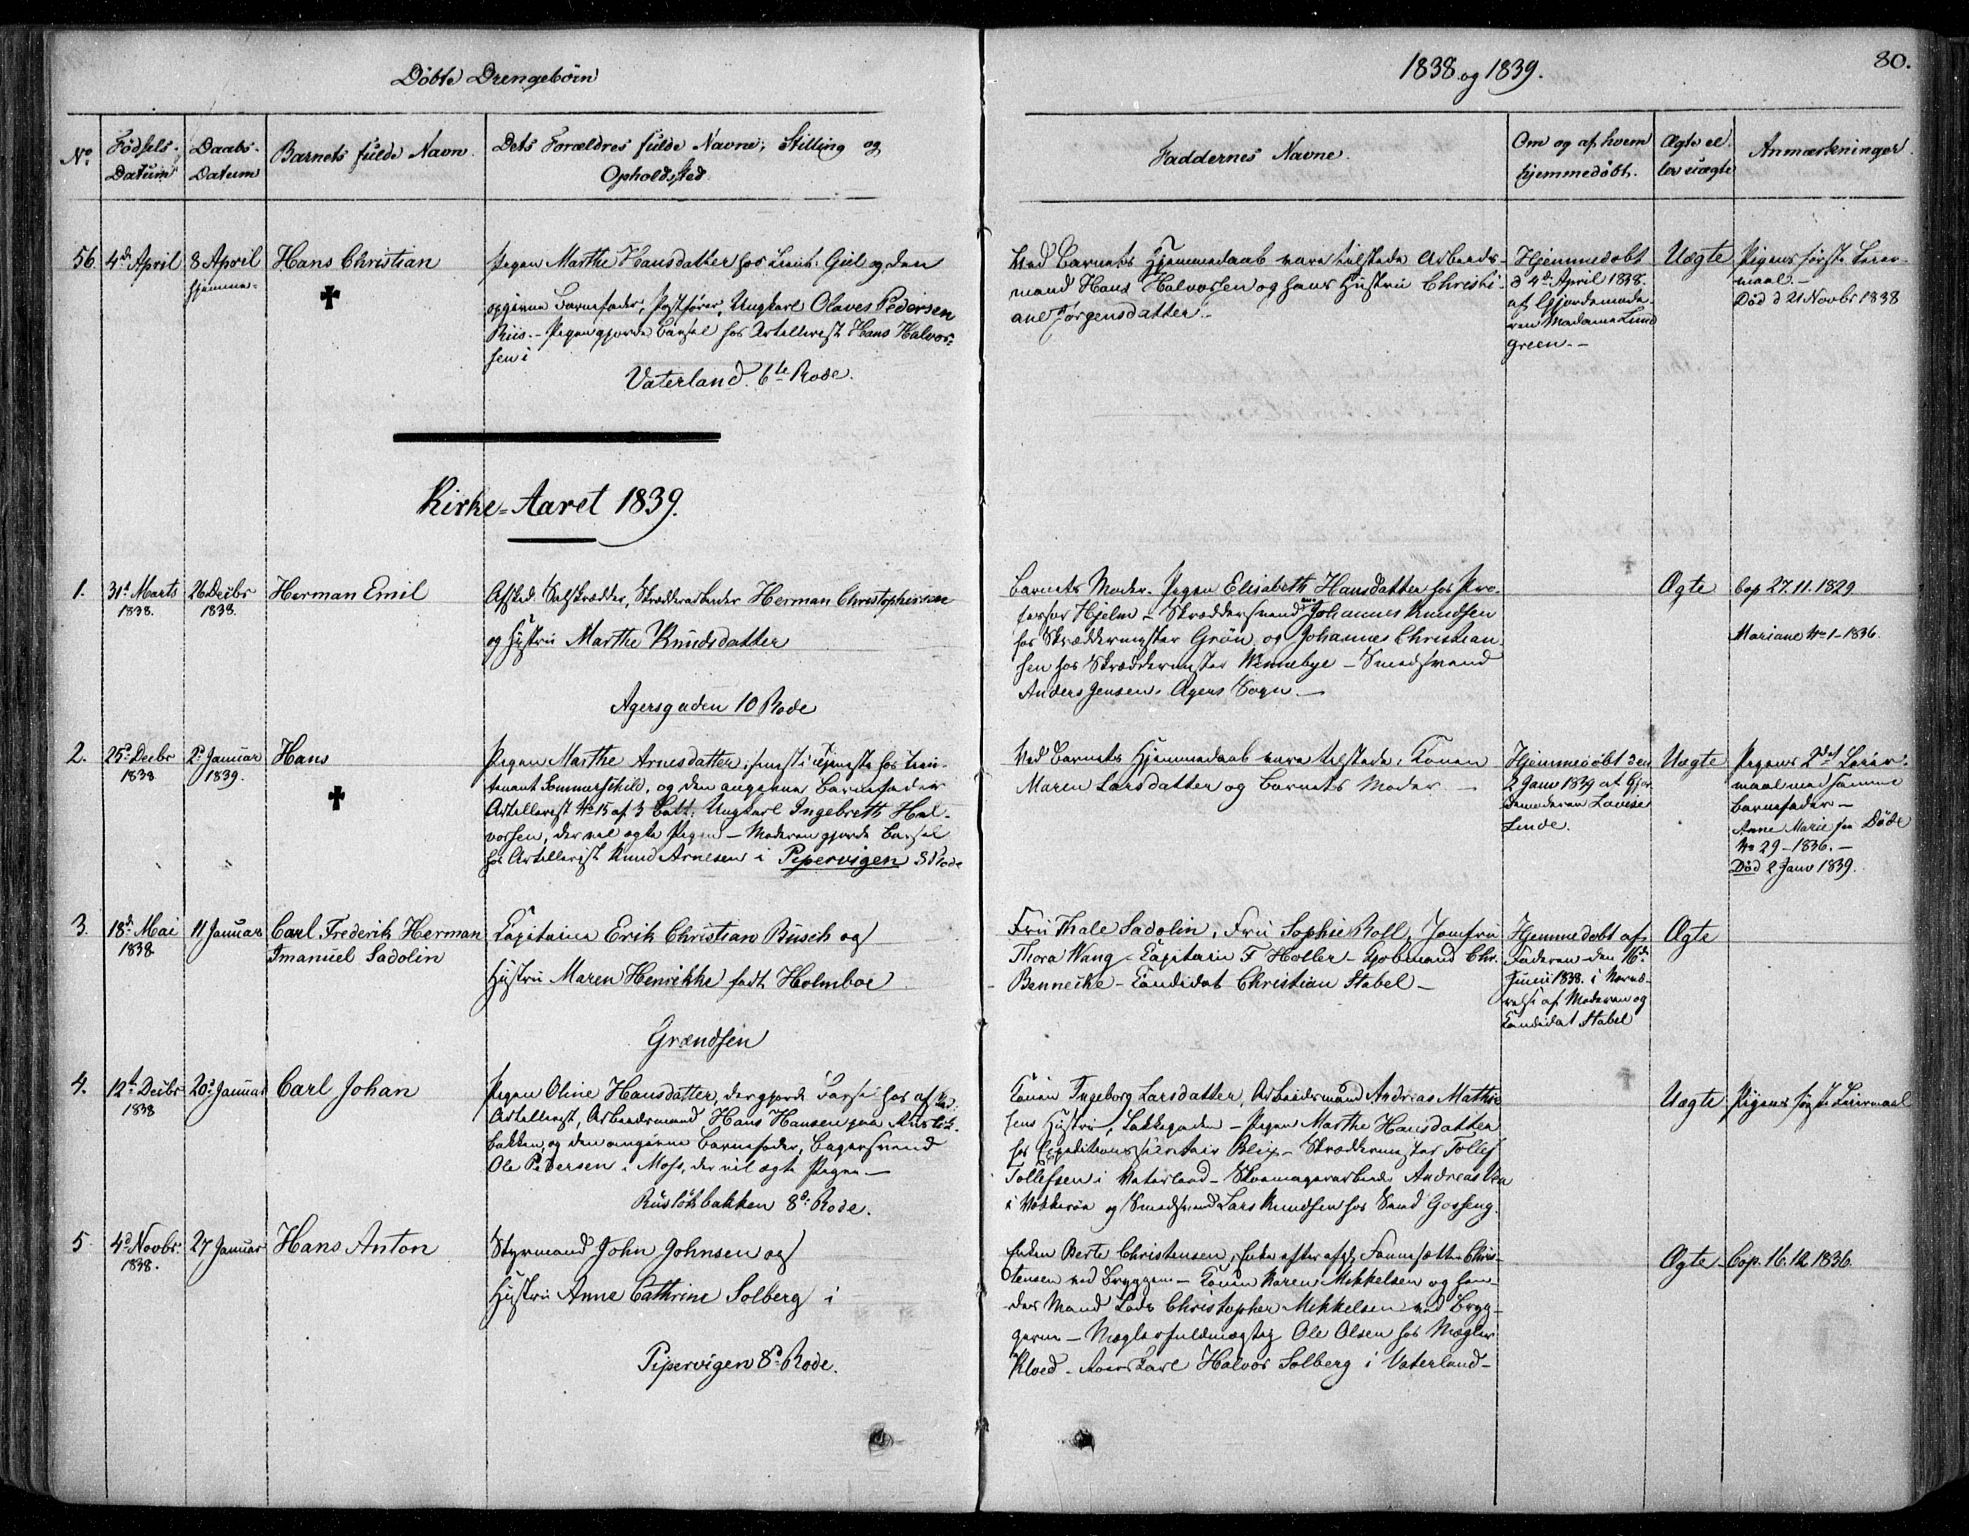 Döbte Drengebörn
1838 og 1839.
80.
No
Födsels-Datum
Daabs-Datum
Barnets fulde Navn
Dets Forældres fulde Navne, Stilling og Opholdssted
Faddernes Navne.
Om og af hvem hjemmedöbt.
Ægte eller uægte
Anmærkninger
56. 4de April
8 April
hjemme-
Hans Christian
Pigen Marthe Hansdatter hos Lieut. Giel og den
opgivne Barnefader, Postförer, Ungkarl Olaves Pedersen
Riis. - Pigen gjorde Barsel hos Artillerist Hans Halvor-
sen i
Vaterland. 6te Rode.
Ved Barnets Hjemmedaab vare tilstede Arbeids-
mand Hans Halvorsen og hans Hustru Christi-
ane Jörgensdatter.
Hjemmedöbt
d 4de April 1838.
af Gjordemode-
ren Madame Lund
green. -
Uægte
Pigens förste Leier-
maal. -
Död d 21 Novbr 1838
Kirke-Aaret 1839.
1. 31te Marts
1838.
26 Decbr
1838.
Herman Emil
Afsked. Skrædderarbeider Herman Christophersen
og Hustru Marthe Knudsdatter
Agersgaden 10 Rode
Barnets Moder. Pigen Elisabeth Hansdatter hos Pro-
fessor Hjelm - Skræddersvend Johannes Knudsen
hos Skræddermester Grön, og Johannes Christian-
sen hos Skræddermester Wennebye - Smedsvend
Anders Jensen, Agers Sogn. -
Ægte
Cop 27.11.1829
Mariane No 1-1836.
2. 25de Decbr
1838
2de Januar
1839.
Hans
Pigen Marthe Arnesdatter, senest i Tjeneste hos Lieu-
tenant Sommerschild, og den angivne Barnefader
Artillerist No 15 af 3 Batt. Ungkarl Ingebreth Hal-
vorsen, der vil ægte Pigen - Moderen gjorde Barsel
hos Artillerist Knud Arnesen i Pipervigen 8 Rode
Ved Barnets Hjemmedaab vare tilstede, Konen
Maren Larsdatter og Barnets Moder. -
Hjemmedöbt den
2 Janv 1839 af Gjor
demoderen Lovise
Linde.
Uægte
Pigens 2det Leier-
maal med samme
Barnefader -
Anne Marie saa Döde
No 29-1836. -
Död 2 Janv 1839.
3. 18de Mai
1838
11 Januar
Carl Frederik Herman
Imanuel Sadolin
Capitaine Erik Christian Busch og
Hustru Maren Henrikke født Holmboe
Grændsen
Fru Thale Sadolin, Fru Sophie Roll, Jomfru
Thora Wang - Capitain F Holler - Grosserer Chr.
Bennecke - Candidat Christian Stabel -
Hjemmedöbt af
Faderen den 16de
Junii 1838. i Nærvæ-
relse af Moderen og
Candidat Stabel
Ægte
4. 12te Decbr
1838
20de Januar
Carl Johan
Pigen Oline Hansdatter, der gjorde Barsel hos afsked.
Artillerist, Arbeidsmand Hans Hansen paa Ruslök-
bakken, og den angivne Barnefader, Bagersvend
Ole Pedersen i Moss, der vil ægte Pigen. -
Ruslökbakken 8de Rode.
Konen Ingeborg Larsdatter, Arbeidsmand Andreas Mathi
sens Hustru, Lakkegaden - Pigen Marthe Hansdatter
hos Expeditionssecretair Blix - Skræddermester Tollef
Tollefsen i Vaterland - Skomagerarbeid. Andreas
i og Smedsvend Lars Knudsen hos Smed Gosseng.
Uægte
Pigens förste Leiermaal
5. 4de Novbr.
1838.
27 Januar
Hans Anton
Styrmand John Johnsen og
Hustru Anne Cathrine Solberg i
Pipervigen 8de Rode.
Enken Berte Christensen, Enke efter afg. Chris-
tensen ved Bryggen - Konen Karen Mikkelsen og hen-
des Mand Lods Christopher Mikkelsen ved Bryg-
gerne - Mæglerfuldmægtig Ole Olsen hos Mægler
Kloed - Karl Halvor Solberg i Vaterland -
Ægte
Cop. 16.12.1836.